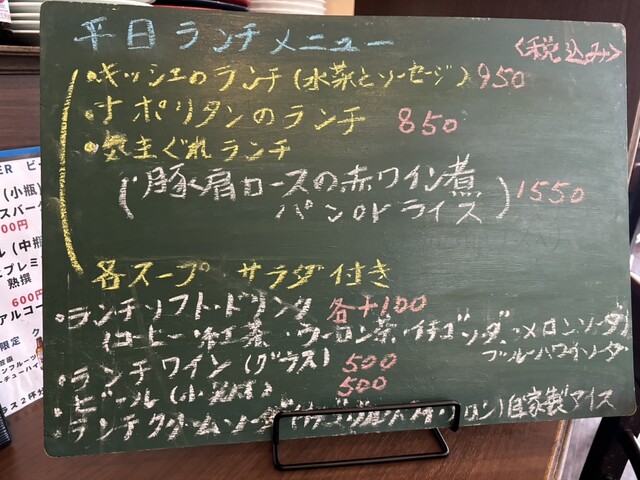 平日 ランチメニュー
<税込み>
・キッシュのランチ(水菜とソーセージ) 950
・ナポリタンのランチ 850
・気まぐれランチ
(豚肩ロースの赤ワイン煮
パン or ライス) 1550
各スープ サラダ付き
・ランチソフトドリンク 各+100
(コーヒー・紅茶・ウーロン茶・イチゴソーダ・メロンソーダ
ブルーハワイソーダ
・ランチワイン(グラス) 500
・ビール(小 500
・ランチクリームソーダ 自家製アイス
ER ビ
(小瓶)
スパー
00円
ル (中瓶
プレミ
熟撰
600円
アルコー
限定
ラス2杯分